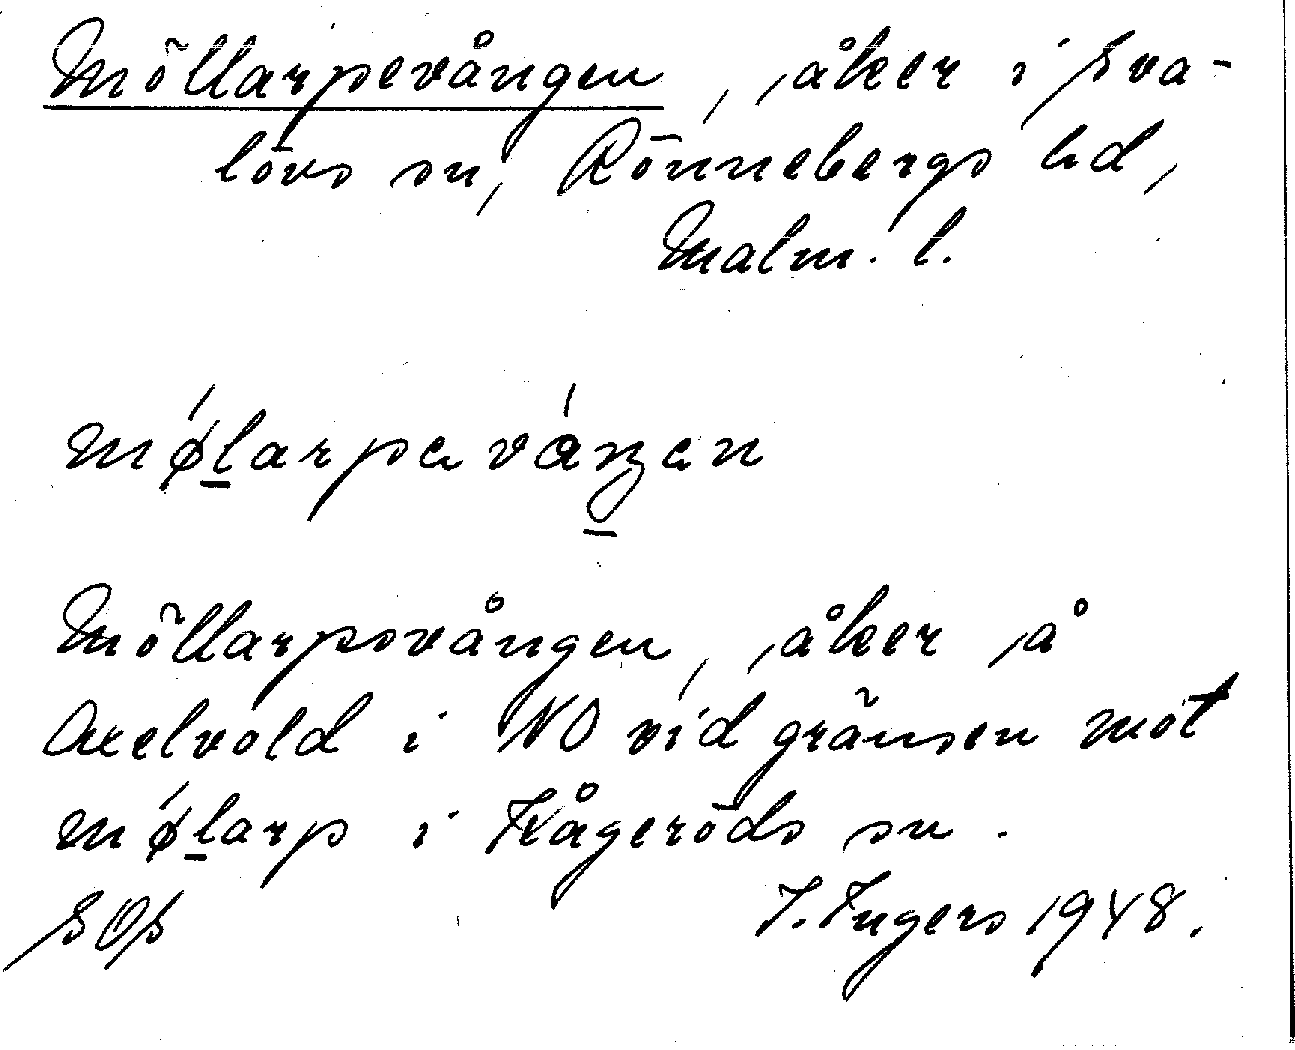 Möllarpevången, åker i Sva-
lövs sn, Rönnebergs hd,
Malm. l.
mǿlarpa váŋan
Möllarpsvången, åker å
Axelvold i NO vid gränsen mot
mǿlarp i Kågeröds sn.
SOS I. Ingers 1948.